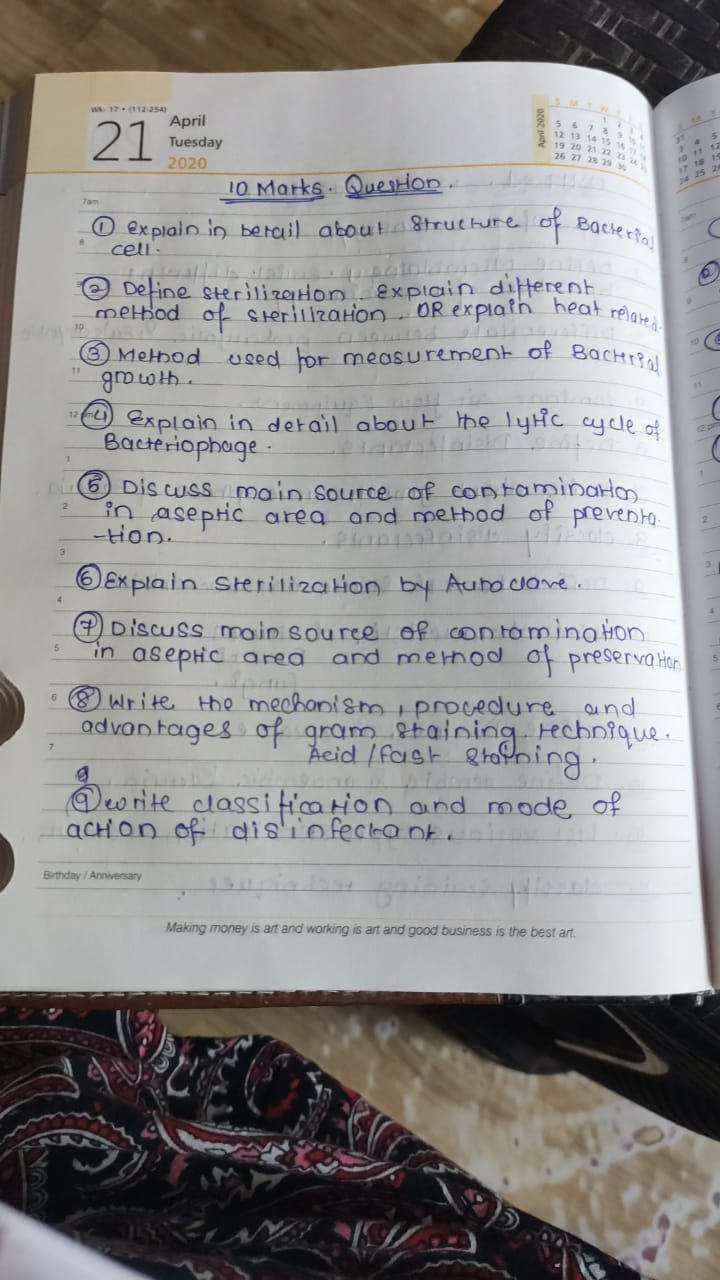 Wk- 17 • (112-254)
21
April
Tuesday
2020
April 2020
S M T W
1 2
5 6 7 8 9 10
12 13 14 15 16 17
19 20 21 22 23 24
26 27 28 29 30
10 Marks. Question.
7am
① Explain in detail about structure of Bacterial
8
cell.
② Define sterilization. Explain different
method of sterilization. OR explain heat related.
10
③ Method used for measurement of Bacterial
11
growth.
12 pm
④ Explain in detail about the lytic cycle of
Bacteriophage.
1
⑤ Discuss main source of contamination
2
in aseptic area and method of preventa-
-tion.
3
⑥ Explain Sterilization by Autoclave.
4
⑦ Discuss main source of contamination
5
in aseptic area and method of preservation
6
⑧ Write the mechanism, procedure and
advantages of gram staining technique.
7
Acid/fast Staining.
9
⑨ write classification and mode of
action of disinfectant.
Birthday / Anniversary
Making money is art and working is art and good business is the best art.